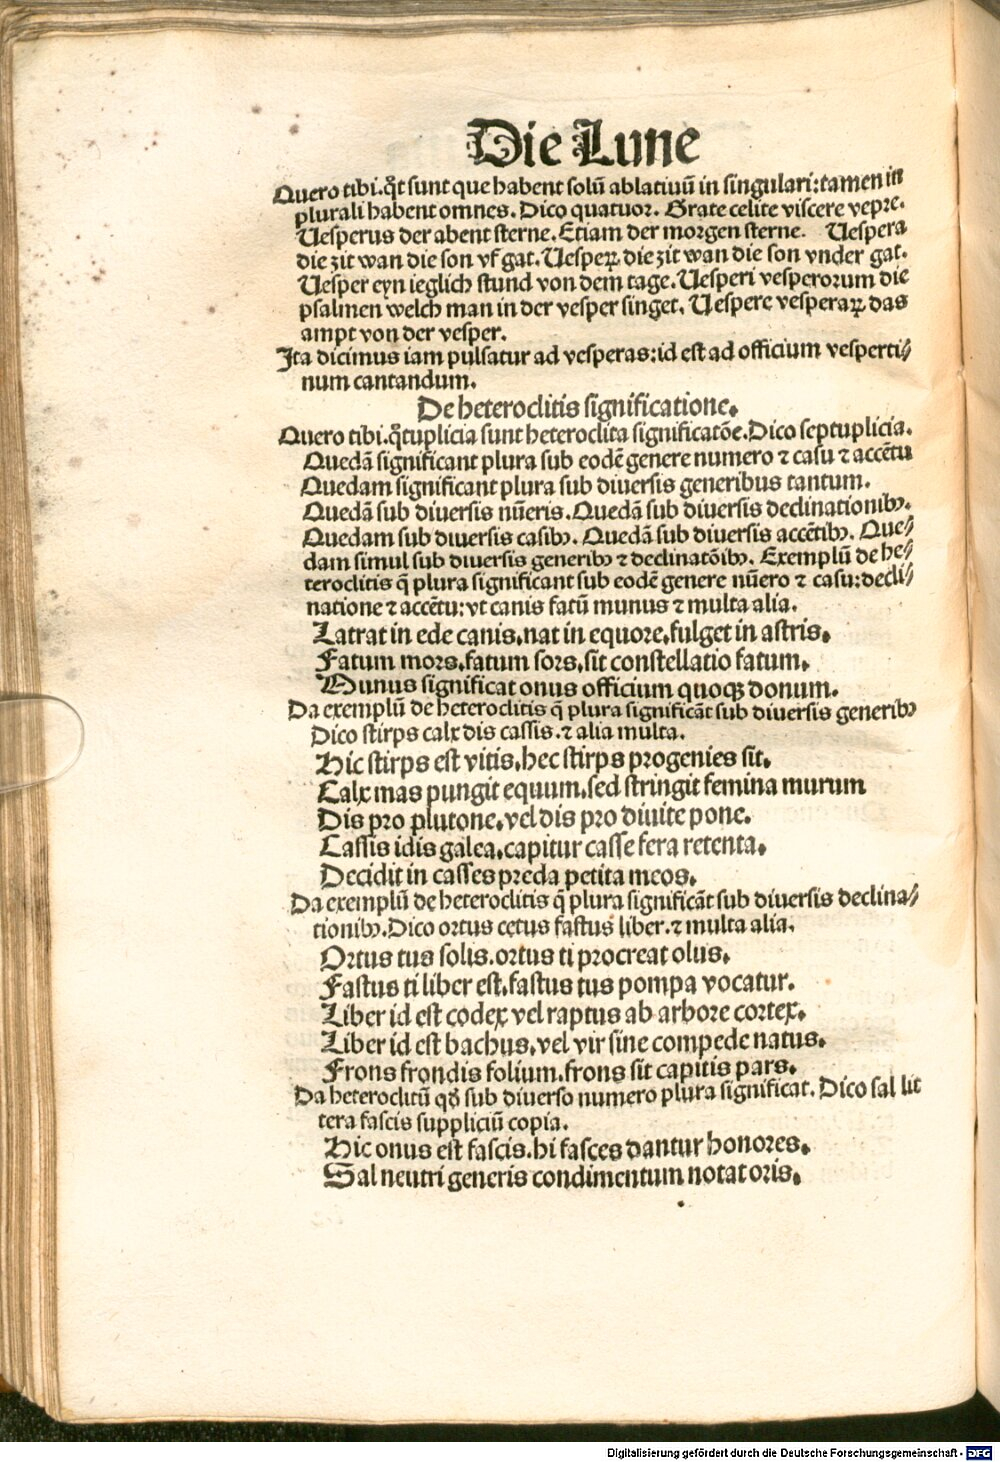 Die Lune
Quero tibi.q̃t sunt que habent solũ ablatiuũ in singulari:tamen in
plurali habent omnes. Dico quatuor. Grate celite viscere vepre.
Uesperus der abent sterne. Etiam der morgen sterne. Uespera
die zit wan die son vf gat. Uesperꝝ die zit wan die son vnder gat.
Uesper eyn ieglich stund von dem tage. Uesperi vesperorum die
psalmen welch man in der vesper singet. Uespere vesperaꝝ das
ampt von der vesper.
Ita dicimus iam pulsatur ad vesperas:id est ad officium vesperti⸗
num cantandum.
De heteroclitis significatione.
Quero tibi.q̃tuplicia sunt heteroclita significatõe. Dico septuplicia.
Quedã significant plura sub eodẽ genere numero ⁊ casu ⁊ accẽtu
Quedam significant plura sub diuersis generibus tantum.
Quedã sub diuersis nũeris. Quedã sub diuersis declinationibꝰ.
Quedam sub diuersis casibꝰ. Quedã sub diuersis accẽtibꝰ. Que⸗
dam simul sub diuersis generibꝰ ⁊ declinatõibꝰ. Exemplũ de he⸗
teroclitis q̃ plura significant sub eodẽ genere nũero ⁊ casu:decli⸗
natione ⁊ accẽtu: vt canis fatũ munus ⁊ multa alia.
Latrat in ede canis, nat in equore, fulget in astris.
Fatum mors, fatum sors, sit constellatio fatum.
Munus significat onus officium quoqꝫ donum.
Da exemplũ de heteroclitis q̃ plura significãt sub diuersis generibꝰ
Dico stirps calx dis cassis. ⁊ alia multa.
Hic stirps est vitis, hec stirps progenies sit.
Calx mas pungit equum, sed stringit femina murum
Dis pro plutone, vel dis pro diuite pone.
Cassis idis galea, capitur casse fera retenta.
Decidit in casses preda petita meos.
Da exemplũ de heteroclitis q̃ plura significãt sub diuersis declina⸗
tionibꝰ. Dico ortus cetus fastus liber. ⁊ multa alia.
Ortus tus solis. ortus ti procreat olus.
Fastus ti liber est, fastus tus pompa vocatur.
Liber id est codex vel raptus ab arbore cortex.
Liber id est bachus, vel vir sine compede natus.
Frons frondis folium. frons sit capitis pars.
Da heteroclitũ qð sub diuerso numero plura significat. Dico sal lit
tera fascis suppliciũ copia.
Hic onus est fascis. hi fasces dantur honores.
Sal neutri generis condimentum notat oris.
Digitalisierung gefördert durch die Deutsche Forschungsgemeinschaft - DFG